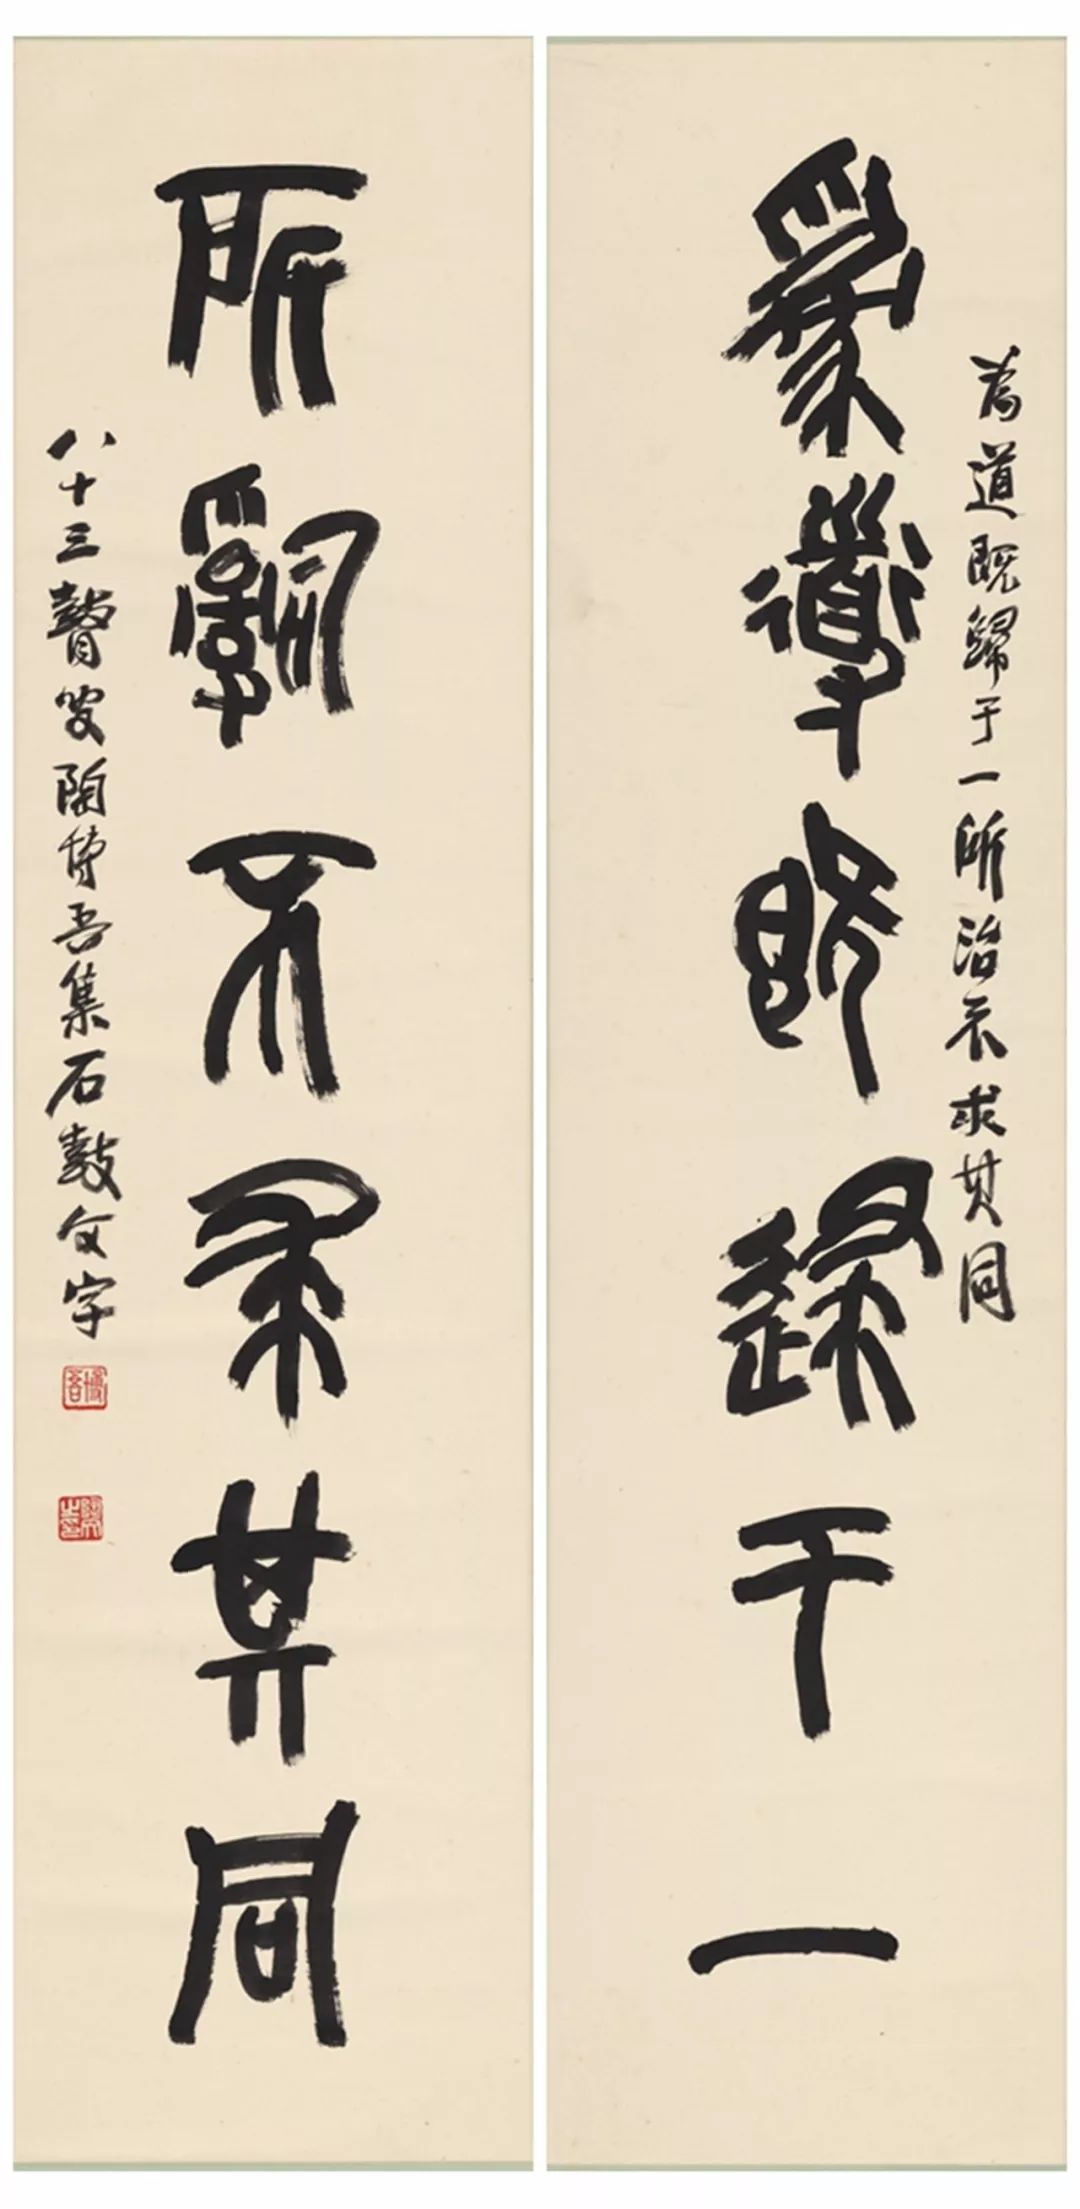 為道既歸于一
為道既歸于一所治不求其同
所嗣不求其同
八十三聱叟陶博吾集石鼓文字
博吾